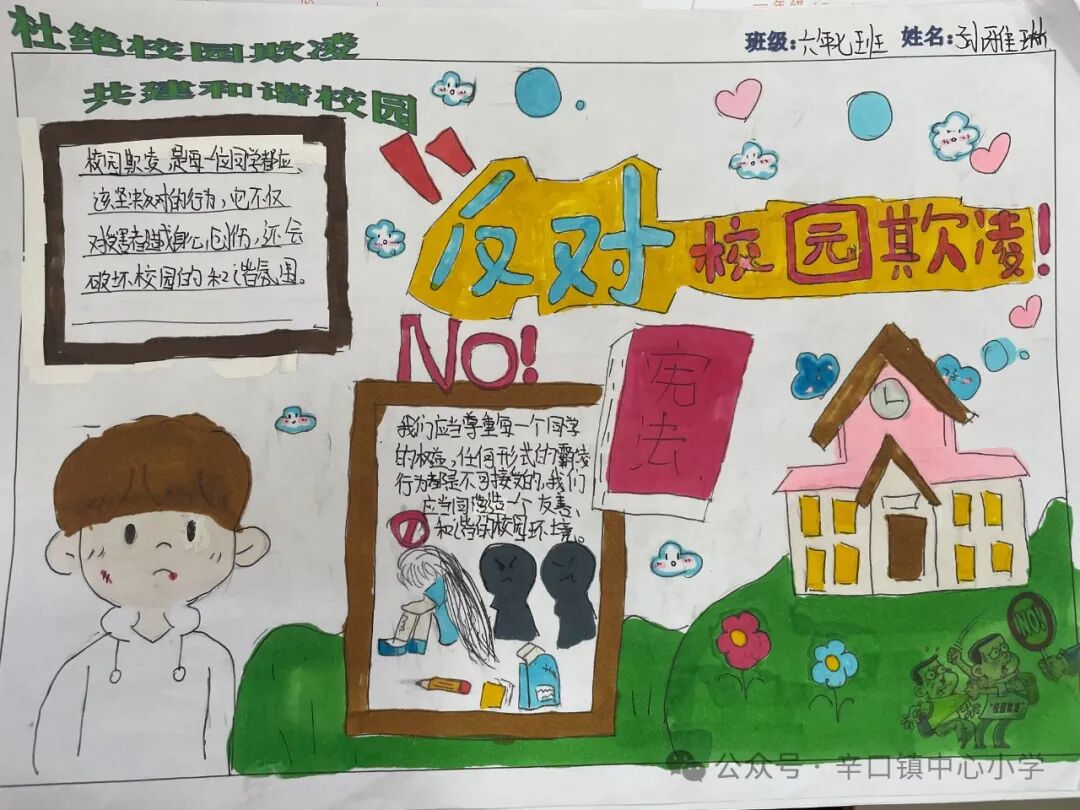 杜绝校园欺凌
共建和谐校园
班级:六年七班 姓名:孙雅琳
校园欺凌,是每一位同学都应
该坚决反对的行为,它不仅
对受害者造成身心创伤,还会
破坏校园的和谐氛围。
反对校园欺凌!
NO!
宪法
我们应当尊重每一个同学
的权益,任何形式的霸凌
行为都是不可接受的,我们
应当同营造一个友善、
和谐的校园环境。
NO!
"校园欺凌"
公众号·辛口镇中心小学